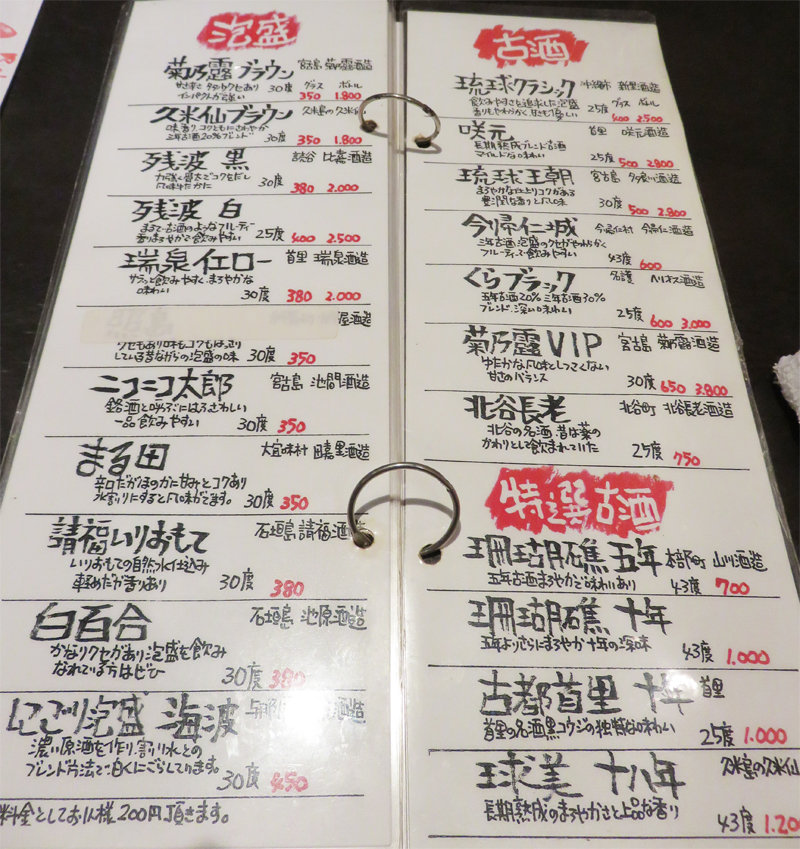 泡盛
菊乃露 ブラウン 宮古島 菊乃露酒造
30度 グラス ボトル
インパクトが強い 350 1.800
久米仙ブラウン 久米島の久米仙
味香り、コクともにさわやか
三年古酒20%ブレンド 30度 350 1.800
残波 黒 読谷 比嘉酒造
力強く骨太でコクをだし
風味ゆたかに 30度 380 2.000
残波 白
まるで古酒のようなフルーティー
香りまろやかで飲みやすい 25度 400 2.500
瑞泉 首里 瑞泉酒造
サラッと飲みやすく、まろやかな
味わい 30度 380 2.000
屋酒造
クセもあり味もコクもはっきり
している昔ながらの泡盛の味 30度 350
ニコニコ太郎 宮古島 池間酒造
銘酒と呼ぶにはふさわしい
一品 飲みやすい 30度 350
まる田 大宜味村 田嘉里酒造
辛口だがほのかに甘みとコクあり
水割りにすると風味がでます。 30度 350
請福いりおもて 石垣島 請福酒
いりおもての自然水仕込み
軽めだが香りあり 30度 380
白百合 石垣島 池原酒造
かなりクセがあり泡盛を飲み
なれている方はぜひ 30度 380
にごり泡盛 海波 酒造
濃い原酒を作り、割り水との
ブレンド方法で白くにごらしてります。
30度 450
料金としてお1人様200円頂きます。
古酒
琉球クラシック 新里酒造
飲みやすさを追求した泡盛 グラス ボトル
香りもやわらかく甘さも優しい 25度 400 2500
咲元 首里 咲元酒造
長期熟成ブレンド古酒
マイルドな味わい 25度 500 2.800
琉球王朝 宮古島 多良川酒造
まろやかな仕上りコクがある
豊潤な香りと風味 30度 500 2.800
今帰仁城 今帰仁村 今帰仁酒造
三年古酒 泡盛のクセがやわらかく
フルーティーで飲みやすい 43度 600
くらブラック 名護 ヘリオス酒造
五年古酒20% 三年古酒30%
ブレンド、深い味わい 25度 600 3.000
菊乃露VIP 宮古島 菊乃露酒造
ゆたかな風味としつこくない
甘さのバランス 30度 650 3.800
北谷長老 北谷町 北谷長老酒造
北谷の名酒、昔は薬の
かわりとして飲まれていた 25度 750
特選古酒
珊瑚礁 五年 本部町 山川酒造
五年古酒まろやかで味わいあり 43度 700
珊瑚礁 十年
五年よりさらにまろやか十年の深味 43度 1.000
古都首里 十年 首里
首里の名酒黒コウジの独特な味わい 25度 1.000
球美 十八年 久米島の久米仙
長期熟成のまろやかさと上品な香り 43度 1.20